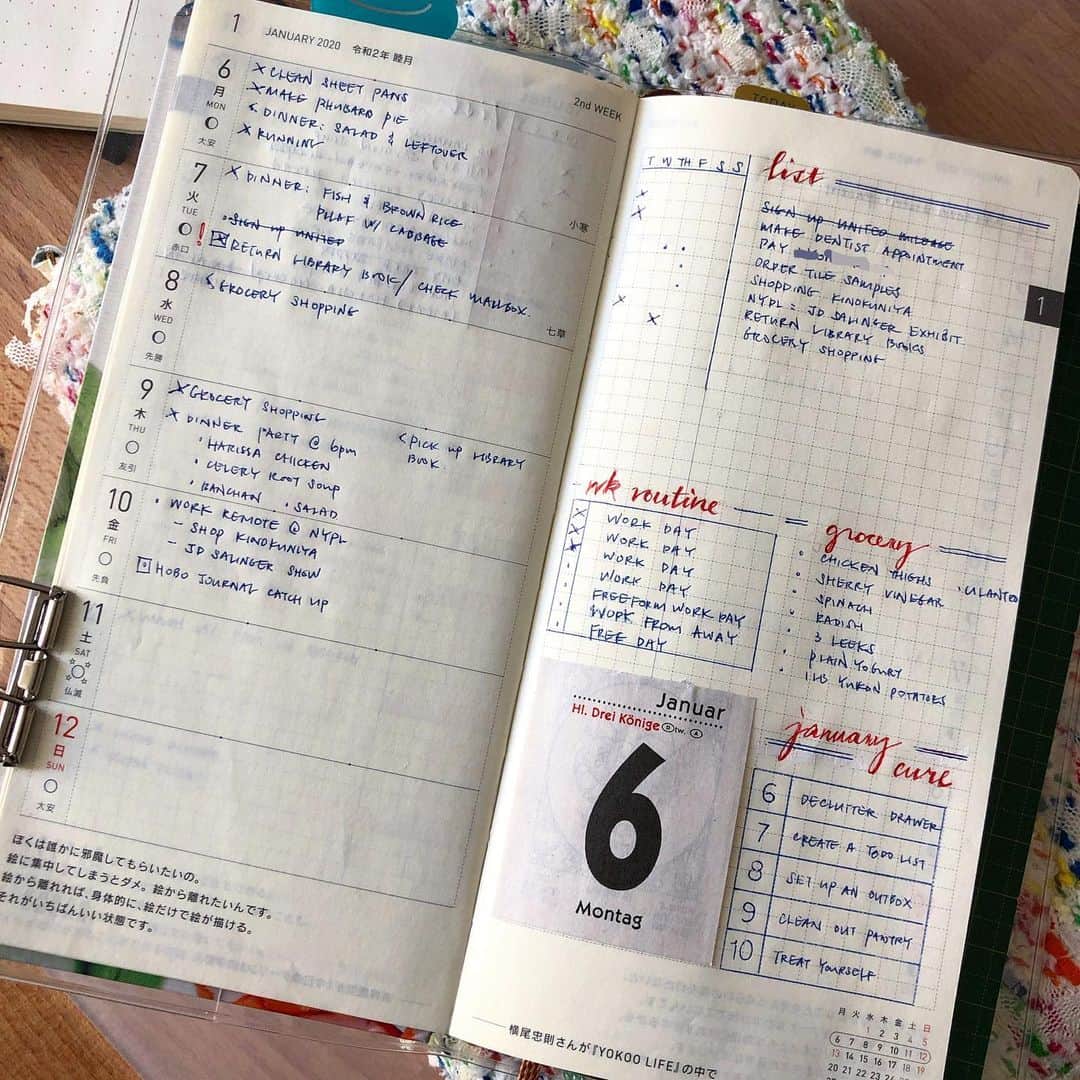 1 JANUARY 2020 令和2年 睦月
2nd WEEK
6 月 MON 大安
× CLEAN SHEET PANS
× MAKE RHUBARB PIE
< DINNER: SALAD & LEFTOVER
× RUNNING
7 火 TUE 赤口
× DINNER: FISH & BROWN RICE
PILAF W/ CABBAGE
小寒
• SIGN UP UNITED
! × RETURN LIBRARY BOOK / CHECK MAILBOX.
8 水 WED 先勝
< GROCERY SHOPPING
七草
9 木 THU 友引
× GROCERY SHOPPING
× DINNER PARTY @ 6pm
< PICK UP LIBRARY
BOOK
• HARISSA CHICKEN
• CELERY ROOT SOUP
• BANCHAN • SALAD
10 金 FRI 先負
• WORK REMOTE @ NYPL
– SHOP KINOKUNIYA
– JD SALINGER SHOW
HOBO JOURNAL CATCH UP
11 土 SAT 仏滅
12 日 SUN 大安
ぼくは誰かに邪魔してもらいたいの。
絵に集中してしまうとダメ。絵から離れたいんです。
絵から離れれば、身体的に、絵だけで絵が描ける。
それがいちばんいい状態です。
TODAY
T W TH F S S
list
SIGN UP UNITED MILEAGE
MAKE DENTIST APPOINTMENT
PAY
ORDER TILE SAMPLES
SHOPPING KINOKUNIYA
NYPL = JD SALINGER EXHIBIT
RETURN LIBRARY BOOKS
GROCERY SHOPPING
1
wk routine
× WORK DAY
× WORK DAY
× WORK DAY
• WORK DAY
• FREEFORM WORK DAY
• WORK FROM AWAY
• FREE DAY
grocery
• CHICKEN THIGHS
• CILANTRO
• SHERRY VINEGAR
• SPINACH
• RADISH
• 3 LEEKS
• PLAIN YOGURT
• 1 LB YUKON POTATOES
Januar
Hl. Drei Könige D tw. A
6
Montag
january
cure
6 DECLUTTER DRAWER
7 CREATE A TODO LIST
8 SET UP AN OUTBOX
9 CLEAN OUT PANTRY
10 TREAT YOURSELF
横尾忠則さんが『YOKOO LIFE』の中で
月 火 水 木 金 土 日
1 2 3 4 5
6 7 8 9 10 11 12
13 14 15 16 17 18 19